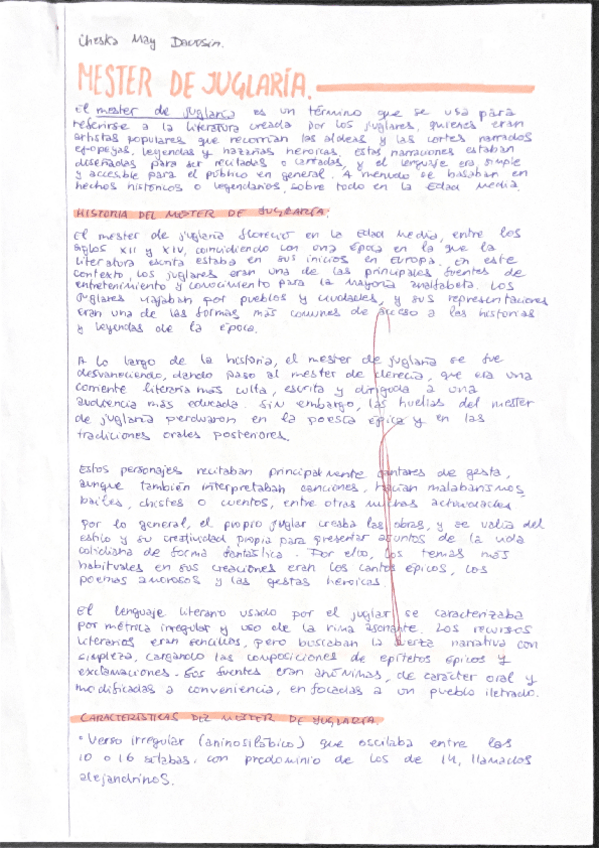 Cheska May Dacosin.
MESTER DE JUGLARÍA.
El mester de juglaría es un término que se usa para
referirse a la literatura creada por los juglares, quienes eran
artistas populares que recorrían las aldeas y las cortes narrados
epopeyas, leyendas y hazañas heroicas. Estas narraciones estaban
diseñadas para ser recitadas o cantadas, y el lenguaje era simple
y accesible para el público en general. A menudo se basaban en
hechos históricos o legendarios, sobre todo en la Edad Media.
HISTORIA DEL MESTER DE JUGLARÍA.
El mester de juglaría floreció en la Edad Media, entre los
siglos XII y XIV, coincidiendo con una época en la que la
literatura escrita estaba en sus inicios en Europa. En este
contexto, los juglares eran una de las principales fuentes de
entretenimiento y conocimiento para la mayoría analfabeta. Los
juglares viajaban por pueblos y ciudades, y sus representaciones
eran una de las formas más comunes de acceso a las historias
y leyendas de la época.
A lo largo de la historia, el mester de juglaría se fue
desvaneciendo, dando paso al mester de clerecía, que era una
corriente literaria más culta, escrita y dirigida a una
audiencia más educada. Sin embargo, las huellas del mester
de juglaría perduraron en la poesía épica y en las
tradiciones orales posteriores.
Estos personajes recitaban principalmente cantares de gesta,
aunque también interpretaban canciones, hacían malabarismos,
bailes, chistes o cuentos, entre otras muchas actuaciones
Por lo general, el propio juglar creaba las obras, y se valía del
estilo y su creatividad propia para presentar asuntos de la vida
cotidiana de forma fantástica. Por ello, los temas más
habituales en sus creaciones eran los cantos épicos, los
poemas amorosos y las gestas heroicas.
El lenguaje literario usado por el juglar se caracterizaba
por métrica irregular y uso de la rima asonante. Los recursos
literarios eran sencillos, pero buscaban la narrativa con
simpleza, cargando las composiciones de epítetos épicos y
exclamaciones. Sus fuentes eran anónimas, de carácter oral y
modificadas a conveniencia, enfocadas a un pueblo iletrado.
CARACTERÍSTICAS DEL MESTER DE JUGLARÍA.
• Verso irregular (aninosilábico) que oscilaba entre las
10 o 16 sílabas, con predominio de los de 14, llamados
alejandrinos.